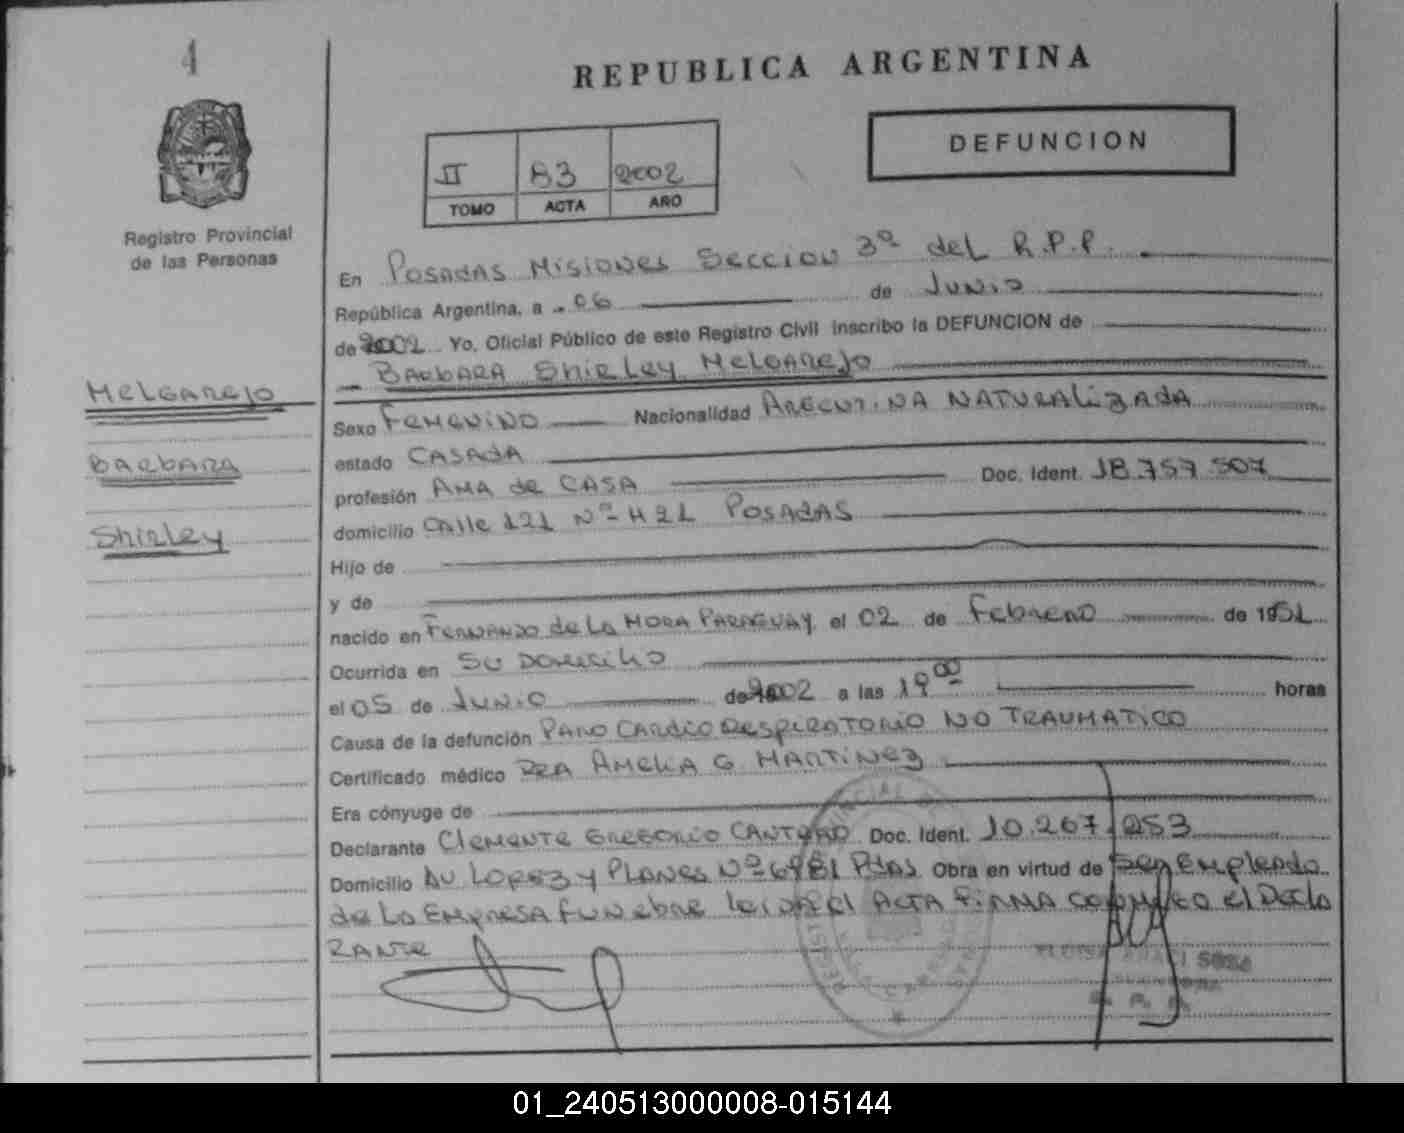 1
REPUBLICA ARGENTINA
DEFUNCION
II 83 2002
TOMO ACTA AÑO
Registro Provincial
de las Personas
En Posadas Misiones Seccion 3ª del R.P.P.
República Argentina, a 06 de Junio
de 2002 Yo, Oficial Público de este Registro Civil inscribo la DEFUNCION de
Barbara Shirley Melgarejo
Melgarejo
Barbara
Shirley
Sexo Femenino Nacionalidad Argentina Naturalizada
estado Casada
profesión Ama de Casa Doc. Ident. 18.757.507
domicilio Calle 121 Nº 421 Posadas
Hijo de
y de
nacido en Fernando de La Mora Paraguay el 02 de Febrero de 1951
Ocurrida en Su Domicilio
el 05 de Junio de 2002 a las 19 00 horas
Causa de la defunción Paro Cardio Respiratorio No Traumatico
Certificado médico Dra Amelia G Martinez
Era cónyuge de
Declarante Clemente Gregorio Doc. Ident. 10.267.253
Domicilio Av Lopez y Planes Nº 6981 Pdas Obra en virtud de Ser Empleado
de La Empresa Funebre leida el Acta Firma conmigo el Decla
rante
SOSA
01_240513000008-015144